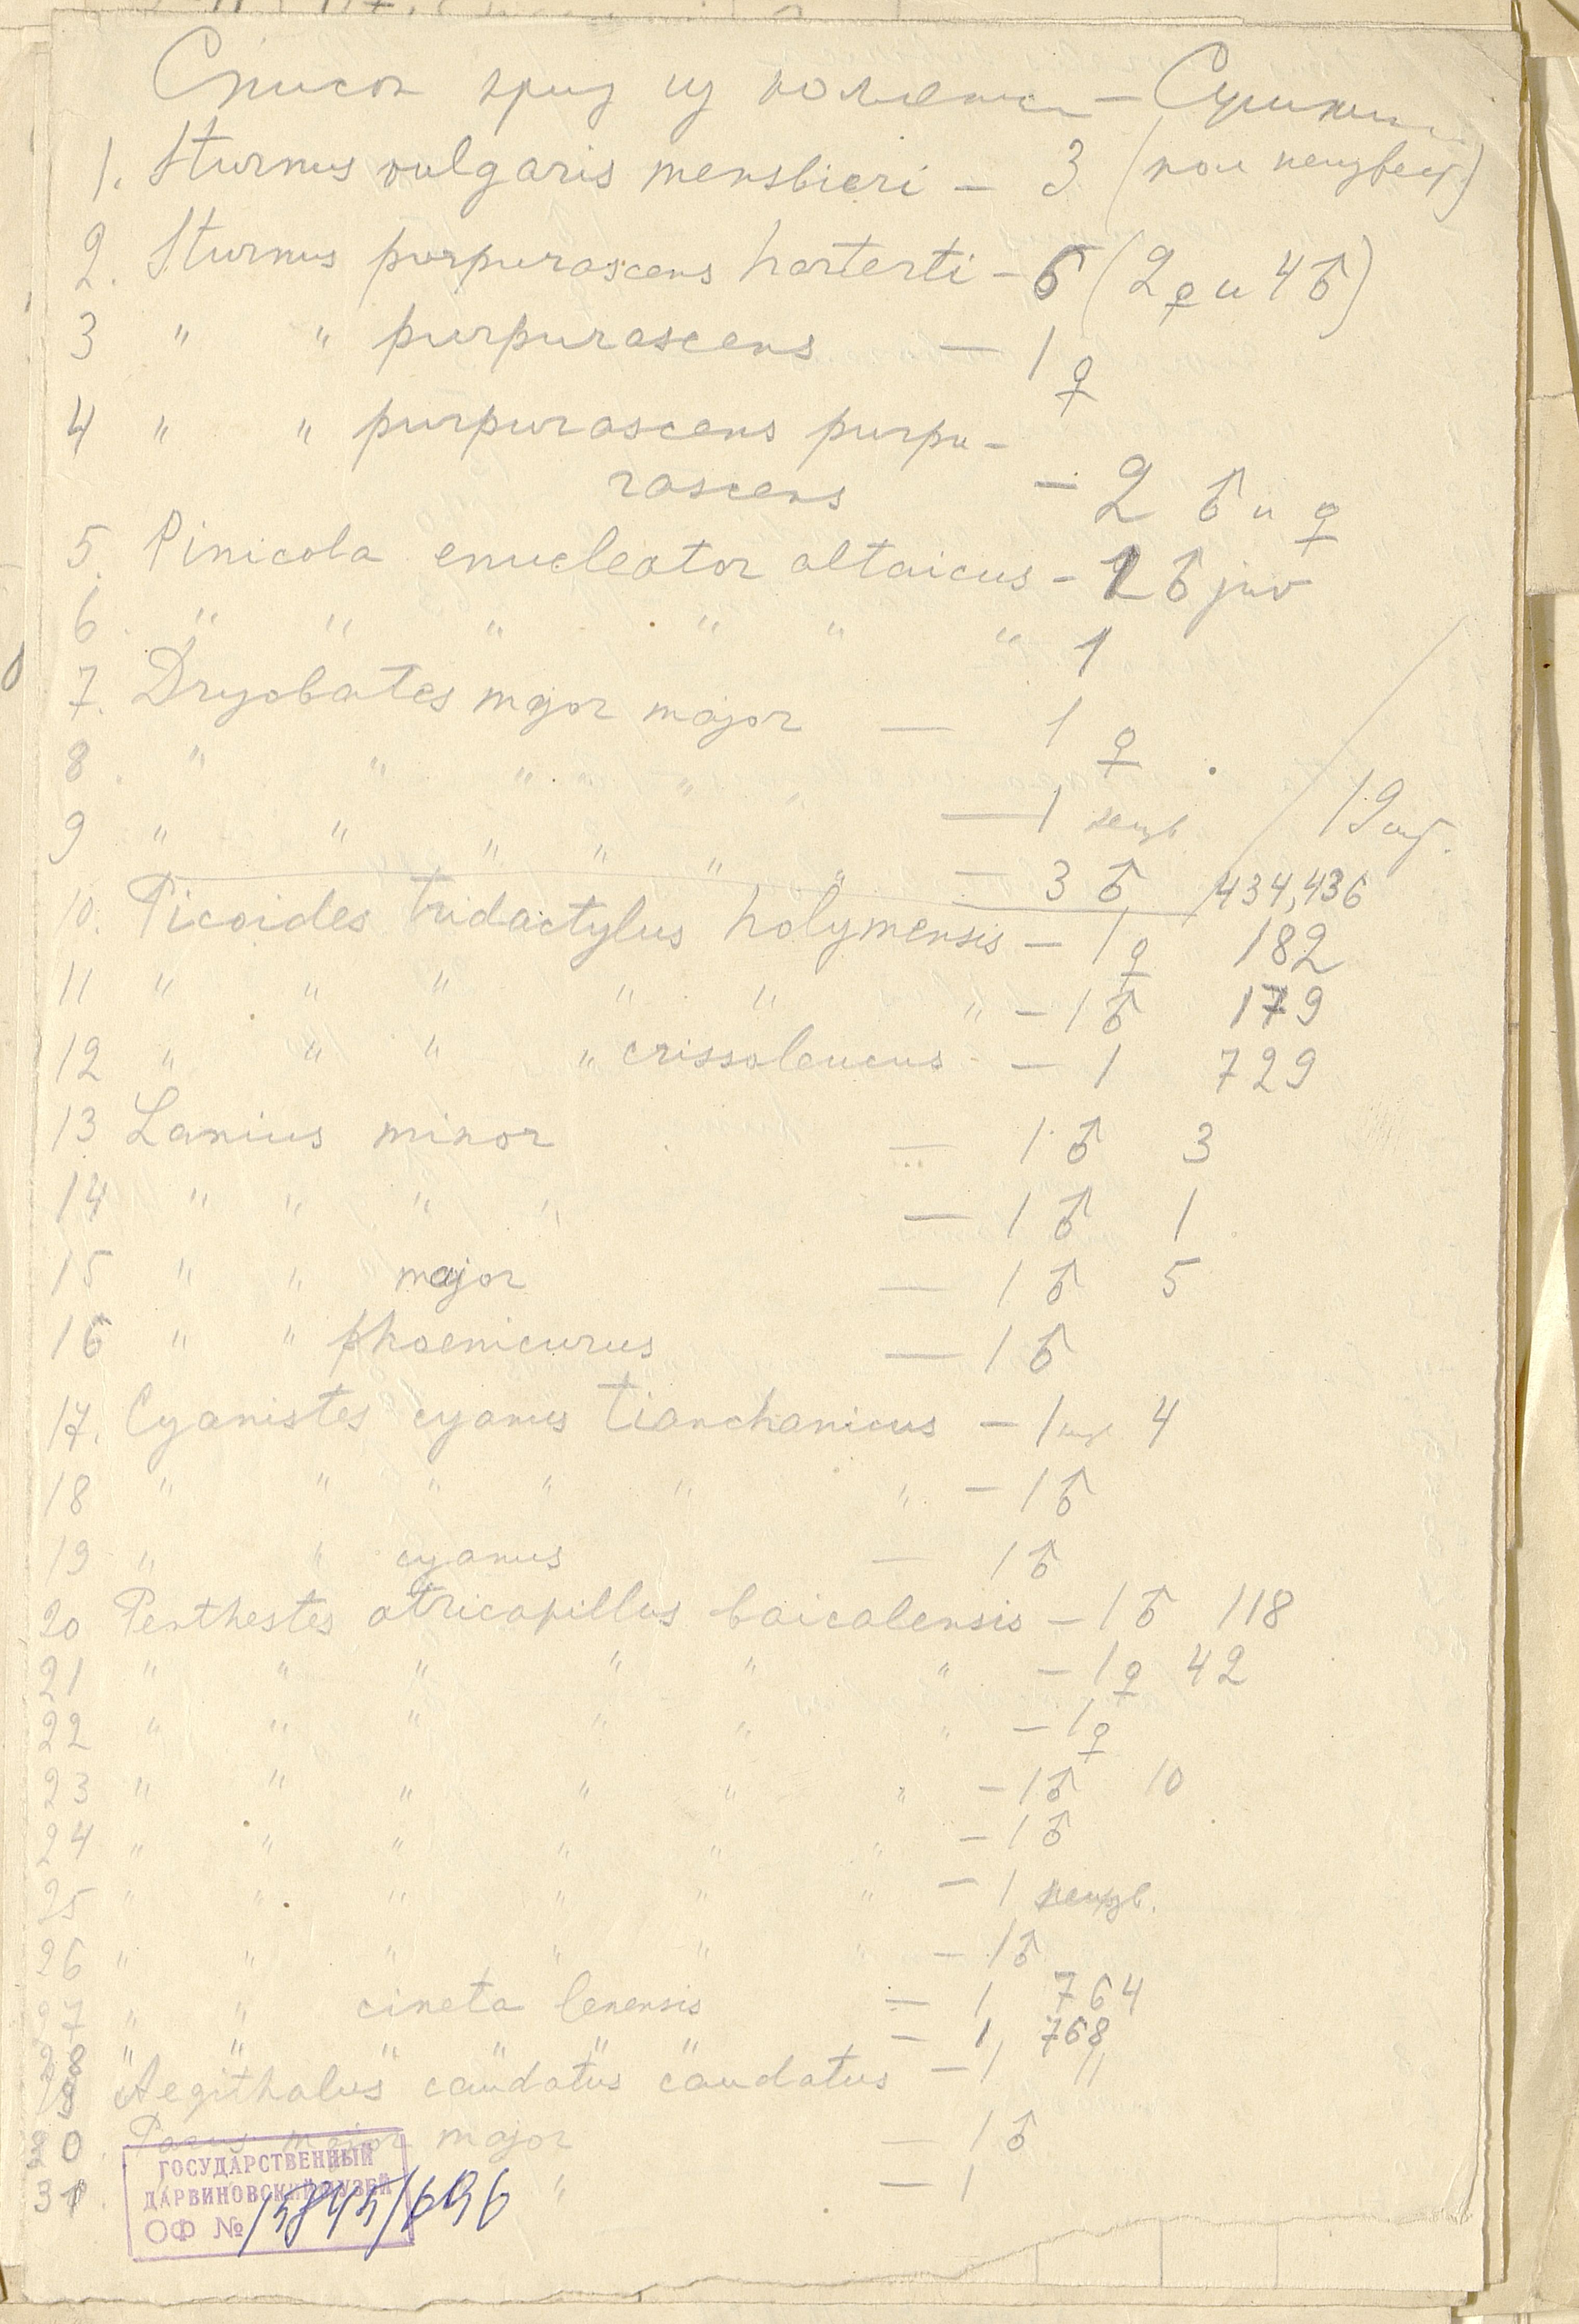 Список приз из коллекци — Сушкин
1. Sturnus vulgaris mensbieri — 3 (пол неизвест)
2. Sturnus porpurascens harterti — 6 (2 ♀ и 4 ♂)
3 " " purpurascens — 1 ♀
4 " " purpurascens purpu-
rascens — 2 ♂ и ♀
5. Pinicola enucleator altaicus - 1 ♂ juv
6. " " " " " " 1
7. Dryobates major major — 1 ♀
8. " " " " "
— 1 неизв.
9 " " " " " " — 3 ♂
19 шт.
10. Picoides tridactylus kolymensis — 1 ♀ 182
434,436
11 " " " " " " — 1 ♂ 179
12 " " " " crissoleucus — 1 729
13 Lanius minor — 1 ♂ 3
14 " " " " — 1 ♂ 1
15 " " major — 1 ♂ 5
16 " " phoenicurus — 1 ♂
17. Cyanistes cyanus tianchanicus — 1 4
18 " " " " " " — 1 ♂
19 " " cyanus — 1 ♂
20 Penthestes atricapillus baicalensis — 1 ♂ 118
21 " " " " " " — 1 ♀ 42
22 " " " " " " — 1 ♀
23 " " " " " " — 1 ♂ 10
24 " " " " " " — 1 ♂
25 " " " " " " — 1 неизв.
26 " " " " " " — 1 ♂
27 " " cincta lenensis — 1 764
28 " " " " " — 1 768
29 Aegithalus caudatus caudatus — 1 11
30. Parus major major — 1 ♂
31. " — 1
ГОСУДАРСТВЕННЫЙ
ДАРВИНОВСКИЙ МУЗЕЙ
ОФ №